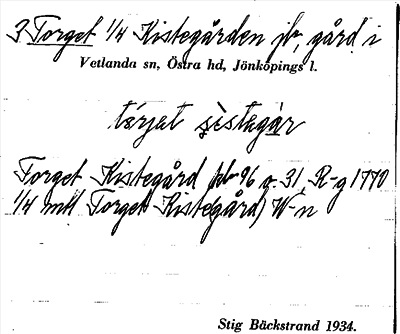 3 Torget 1/4 Kistegården jb, gård i
Vetlanda sn, Östra hd, Jönköpings l.
tórjat sìstegàr
Torget Kistegård jb 96 g. 31, R-g 1770
1/4 mtl Torget Kiste(gård) W-n
Stig Bäckstrand 1934.